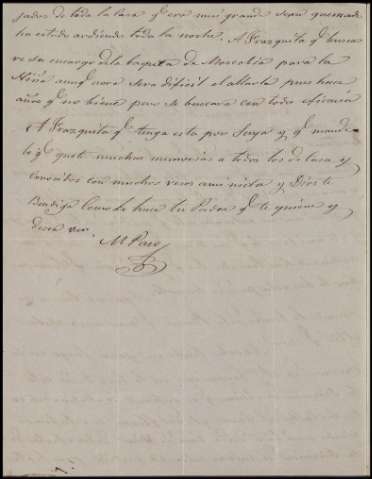 jados de toda la casa q.e era muy grande se an quemado
ha estado ardiendo toda la noche. A Frazquita q.e
re su encargo de la baqueta de Moscobia para la
Niña aunq.e sera dificil el allarla pues hace
años q.e no biene pero se buscara con toda eficacia
A Frazquita q.e tenga esta por Suya y q.e mande
lo q.e guste muchas memorias a todos los de casa y
conocidos con muchos vesos a mi nieta y Dios te
Bendiga como lo hace tu Padre q.e te quiere y
desea ver
M Paro